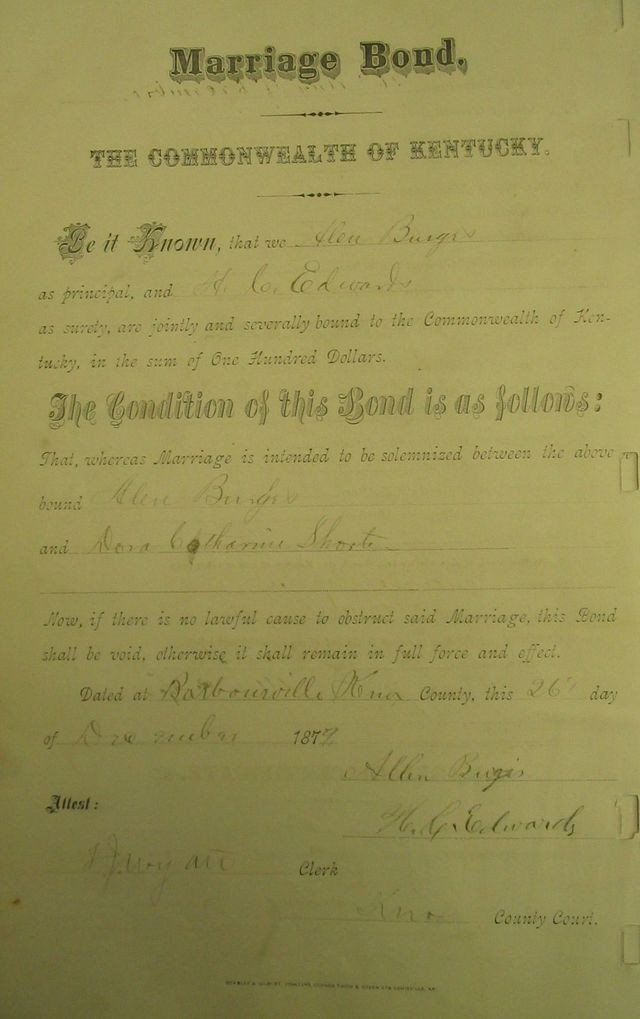 Marriage Bond.
THE COMMONWEALTH OF KENTUCKY.
Be it Known, that we Alen Burgis
as principal, and H. C. Edwards
as surety, are jointly and severally bound to the Commonwealth of Ken-
tucky, in the sum of One Hundred Dollars.
The Condition of this Bond is as follows:
That, whereas Marriage is intended to be solemnized between the above
bound Alen Burgis
and Dora Catharine Short
Now, if there is no lawful cause to obstruct said Marriage, this Bond
shall be void, otherwise it shall remain in full force and effect.
Dated at Barbourville Knox County, this 26 day
of December 1877
Allen Burgis
Attest:
H. C. Edwards
Clerk
Knox County Court.